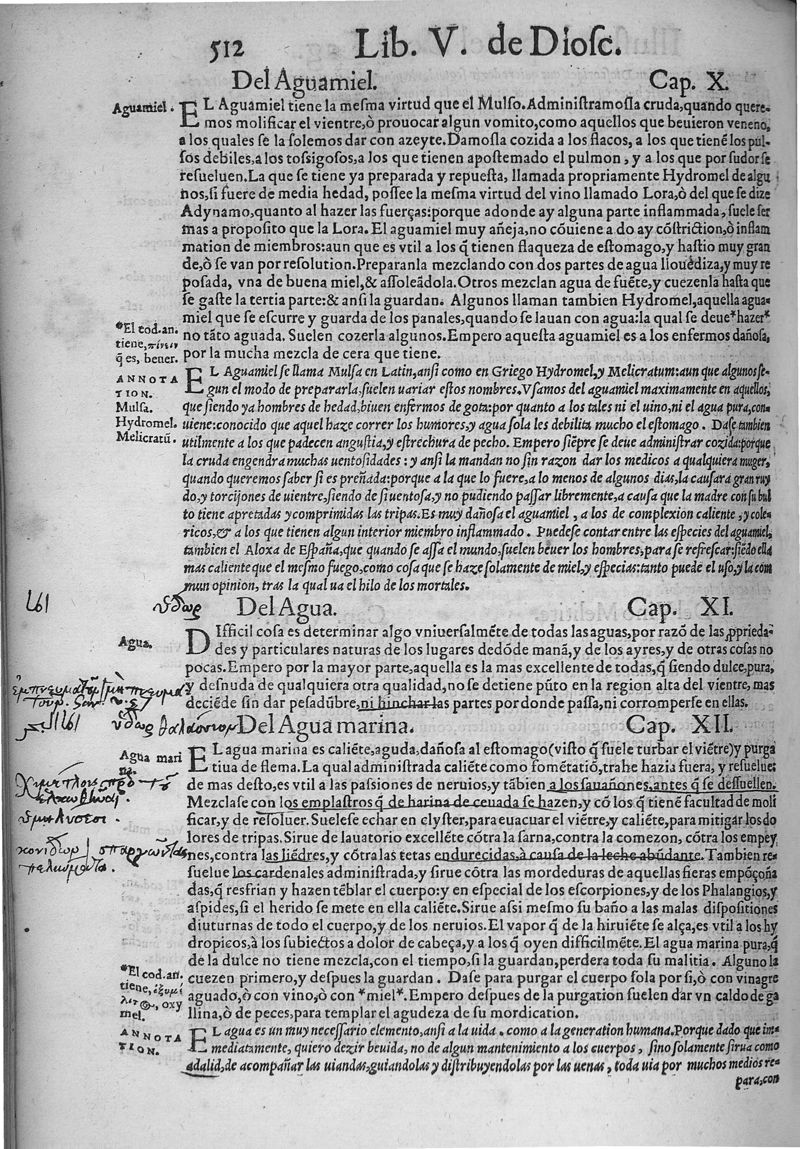 512 Lib. V. de Diosc.
Del Aguamiel. Cap. X.
Aguamiel.
EL Aguamiel tiene la mesma virtud que el Mulso. Administramosla cruda, quando quere-
mos molificar el vientre, ò prouocar algun vomito, como aquellos que beuieron veneno,
a los quales se la solemos dar con azeyte. Damosla cozida a los flacos, a los que tienẽ los pul-
sos debiles, a los tossigosos, a los que tienen apostemado el pulmon, y a los que por sudor se
resueluen. La que se tiene ya preparada y repuesta, llamada propriamente Hydromel de algu
nos, si fuere de media hedad, possee la mesma virtud del vino llamado Lora, ò del que se dize
Adynamo, quanto al hazer las fuerças: porque adonde ay alguna parte inflammada, suele ser
mas a proposito que la Lora. El aguamiel muy añeja, no cõuiene a do ay cõstriction, ò inflam
mation de miembros: aun que es vtil a los q̃ tienen flaqueza de estomago, y hastio muy gran
de, ò se van por resolution. Preparanla mezclando con dos partes de agua llouediza, y muy re
posada, vna de buena miel, & assoleãdola. Otros mezclan agua de fuẽte, y cuezenla hasta que
se gaste la tertia parte: & ansi la guardan. Algunos llaman tambien Hydromel, aquella agua
miel que se escurre y guarda de los panales, quando se lauan con agua: la qual se deue *hazer*
no tãto aguada. Suelen cozerla algunos. Empero aquesta aguamiel es a los enfermos dañosa,
por la mucha mezcla de cera que tiene.
*El cod. an.
tiene, πίνειν
q̃ es, beuer.
ANNOTA
TION.
Mulsa.
Hydromel.
Melicratũ.
EL Aguamiel se llama Mulsa en Latin, ansi como en Griego Hydromel, y Melicratum: aun que algunos se-
gun el modo de prepararla, suelen uariar estos nombres. Vsamos del aguamiel maximamente en aquellos,
que siendo ya hombres de hedad, biuen enfermos de gota: por quanto a los tales ni el uino, ni el agua pura, con-
uiene: conocido que aquel haze correr los humores, y agua sola les debilita mucho el estomago. Dase tambien
utilmente a los que padecen angustia, y estrechura de pecho. Empero siẽpre se deue administrar cozida: porque
la cruda engendra muchas uentosidades: y ansi la mandan no sin razon dar los medicos a qualquiera muger,
quando queremos saber si es preñada: porque a la que lo fuere, a lo menos de algunos dias, la causara gran ruy
do, y torcijones de uientre, siendo de si uentosa, y no pudiendo passar libremente, a causa que la madre con su bul
to tiene apretadas y comprimidas las tripas. Es muy dañosa el aguamiel, a los de complexion caliente, y cole-
ricos, & a los que tienen algun interior miembro inflammado. Puedese contar entre las especies del aguamiel,
tambien el Aloxa de España, que quando se assa el mundo, suelen beuer los hombres, para se refrescar: siẽdo ella
mas caliente que el mesmo fuego, como cosa que se haze solamente de miel, y especias: tanto puede el uso, y la com
mun opinion, tras la qual ua el hilo de los mortales.
ὕδωρ Del Agua. Cap. XI.
Agua.
DIfficil cosa es determinar algo vniuersalmẽte de todas las aguas, por razõ de las p̱prieda-
des y particulares naturas de los lugares dedõde manã, y de los ayres, y de otras cosas no
pocas. Empero por la mayor parte, aquella es la mas excellente de todas, q̃ siendo dulce, pura,
y desnuda de qualquiera otra qualidad, no se detiene pũto en la region alta del vientre, mas
deciẽde sin dar pesadũbre, ni hinchar las partes por donde passa, ni corromperse en ellas.
ὕδωρ θαλάσσιον Del Agua marina. Cap. XII.
Agua mari
na.
EL agua marina es caliẽte, aguda, dañosa al estomago (visto q̃ suele turbar el viẽtre) y purga
tiua de flema. La qual administrada caliẽte como fomẽtatiõ, trahe hazia fuera, y resuelue:
de mas desto, es vtil a las passiones de neruios, y tãbien a los sauañones, antes q̃ se dessuellen.
Mezclase con los emplastros q̃ de harina de ceuada se hazen, y cõ los q̃ tienẽ facultad de moli
ficar, y de resoluer. Suelese echar en clyster, para euacuar el viẽtre, y caliẽte, para mitigar los do
lores de tripas. Sirue de lauatorio excellẽte cõtra la sarna, contra la comezon, cõtra los empey
nes, contra las liẽdres, y cõtra las tetas endurecidas, à causa de la leche abũdante. Tambien re-
suelue los cardenales administrada, y sirue cõtra las mordeduras de aquellas fieras empõçoña
das, q̃ resfrian y hazen tẽblar el cuerpo: y en especial de los escorpiones, y de los Phalangios, y
aspides, si el herido se mete en ella caliẽte. Sirue assi mesmo su baño a las malas dispositiones
diuturnas de todo el cuerpo, y de los neruios. El vapor q̃ de la hiruiẽte se alça, es vtil a los hy
dropicos, à los subiectos a dolor de cabeça, y a los q̃ oyen difficilmẽte. El agua marina pura, q̃
de la dulce no tiene mezcla, con el tiempo, si la guardan, perdera toda su malitia. Alguno la
cuezen primero, y despues la guardan. Dase para purgar el cuerpo sola por si, ò con vinagre
aguado, ò con vino, ò con *miel*. Empero despues de la purgation suelen dar vn caldo de ga
llina, ò de peces, para templar el agudeza de su mordication.
*El cod. an.
tiene, ὀξυμέ
λιτος, oxy
mel.
ANNOTA
TION.
EL agua es un muy necessario elemento, ansi a la uida, como a la generation humana. Porque dado que im-
mediatamente, quiero dezir beuida, no de algun mantenimiento a los cuerpos, sino solamente sirua como
adalid, de acompañar las uiandas, guiandolas y distribuyendolas por las uenas, toda uia por muchos medios re-
para, con